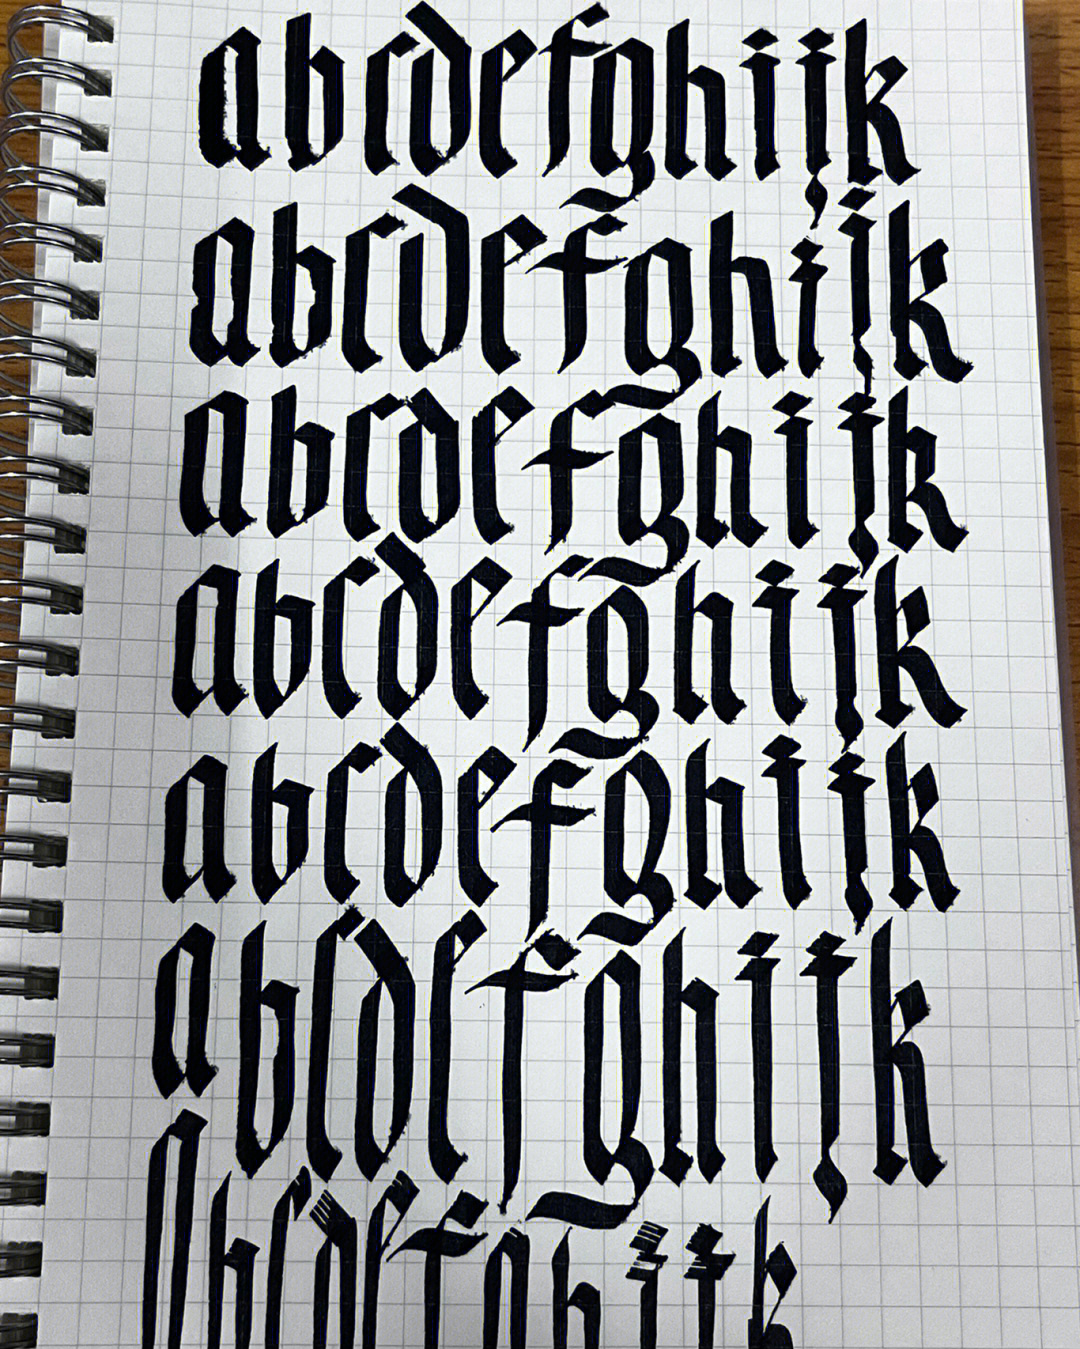 abcdefghijk
abcdefghijk
abcdefghijk
abcdefghijk
abcdefghijk
abcdefghijk
abcdefghijk